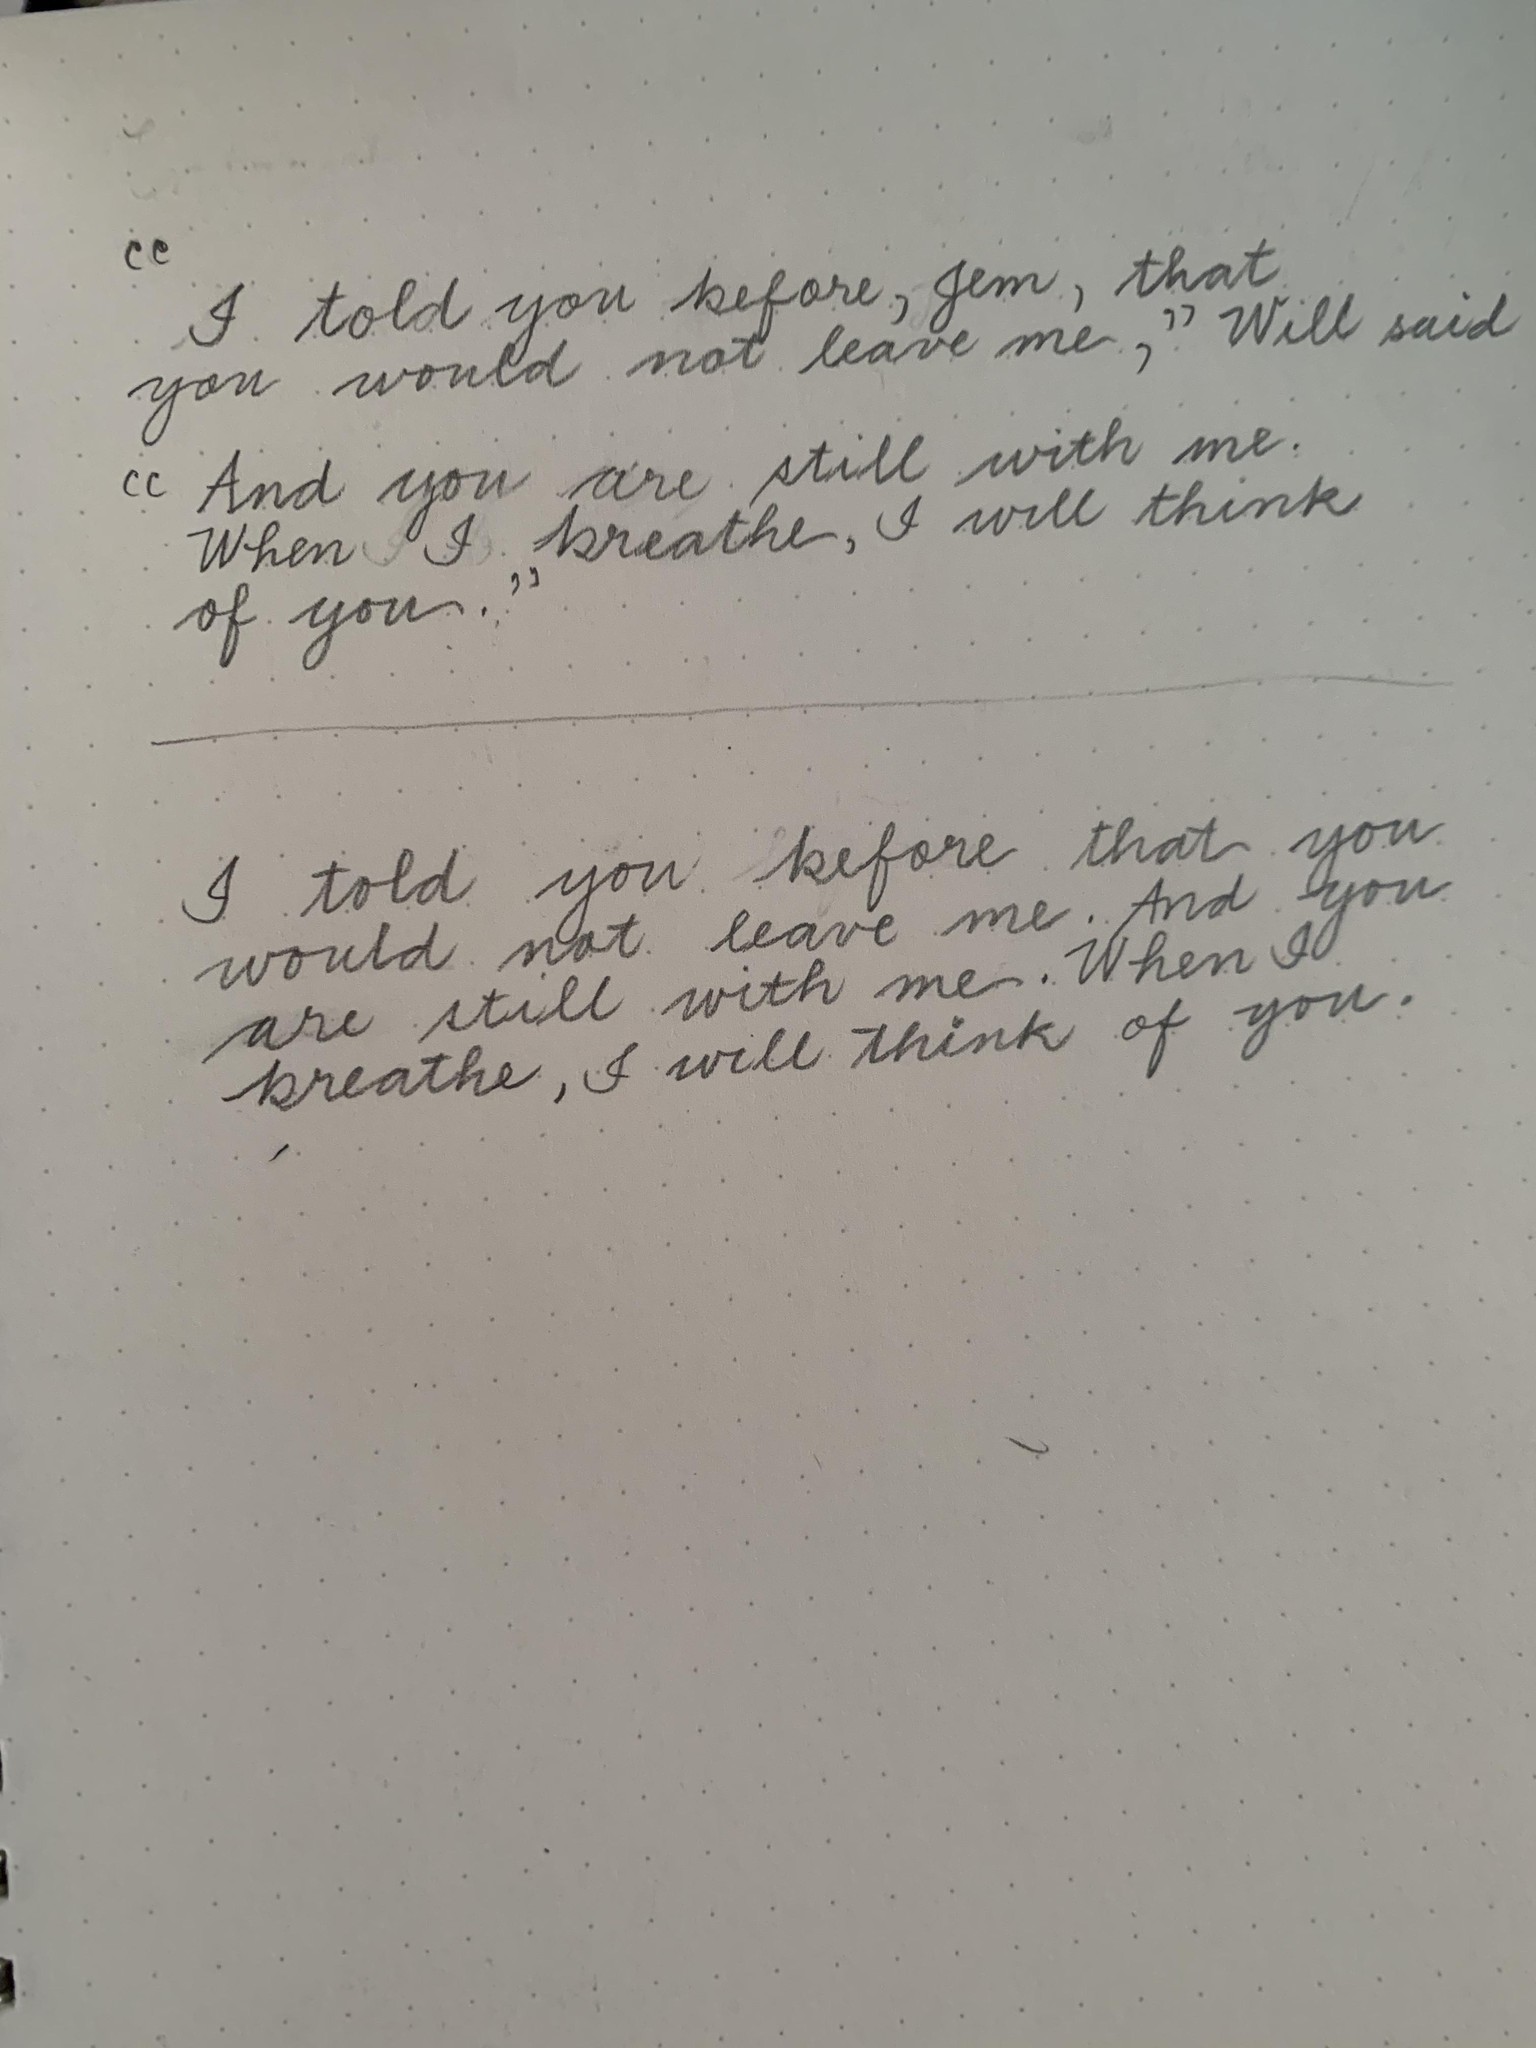 “
I told you before, Jem, that
you would not leave me,” Will said
“ And you are still with me.
When I breathe, I will think
of you.”
I told you before that you
would not leave me. And you
are still with me. When I
breathe, I will think of you.